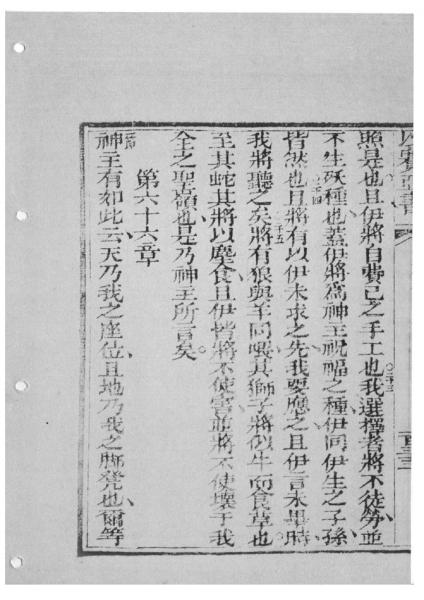 以賽亞書
照是也且伊將自費己之手工也我選擇者將不徒勞並
不生殀種也蓋伊將為神主祝福之種伊同伊生之子孫
皆然也且將有以伊未求之先我要應之且伊言未畢時
我將聽之矣將有狼與羊同喂其獅子將似牛而食草也
至其蛇其將以塵食且伊皆將不使害並將不使壞于我
全之聖嶺也是乃神主所言矣
第六十六章
神主有如此云天乃我之座位且地乃我之脚凳也爾等